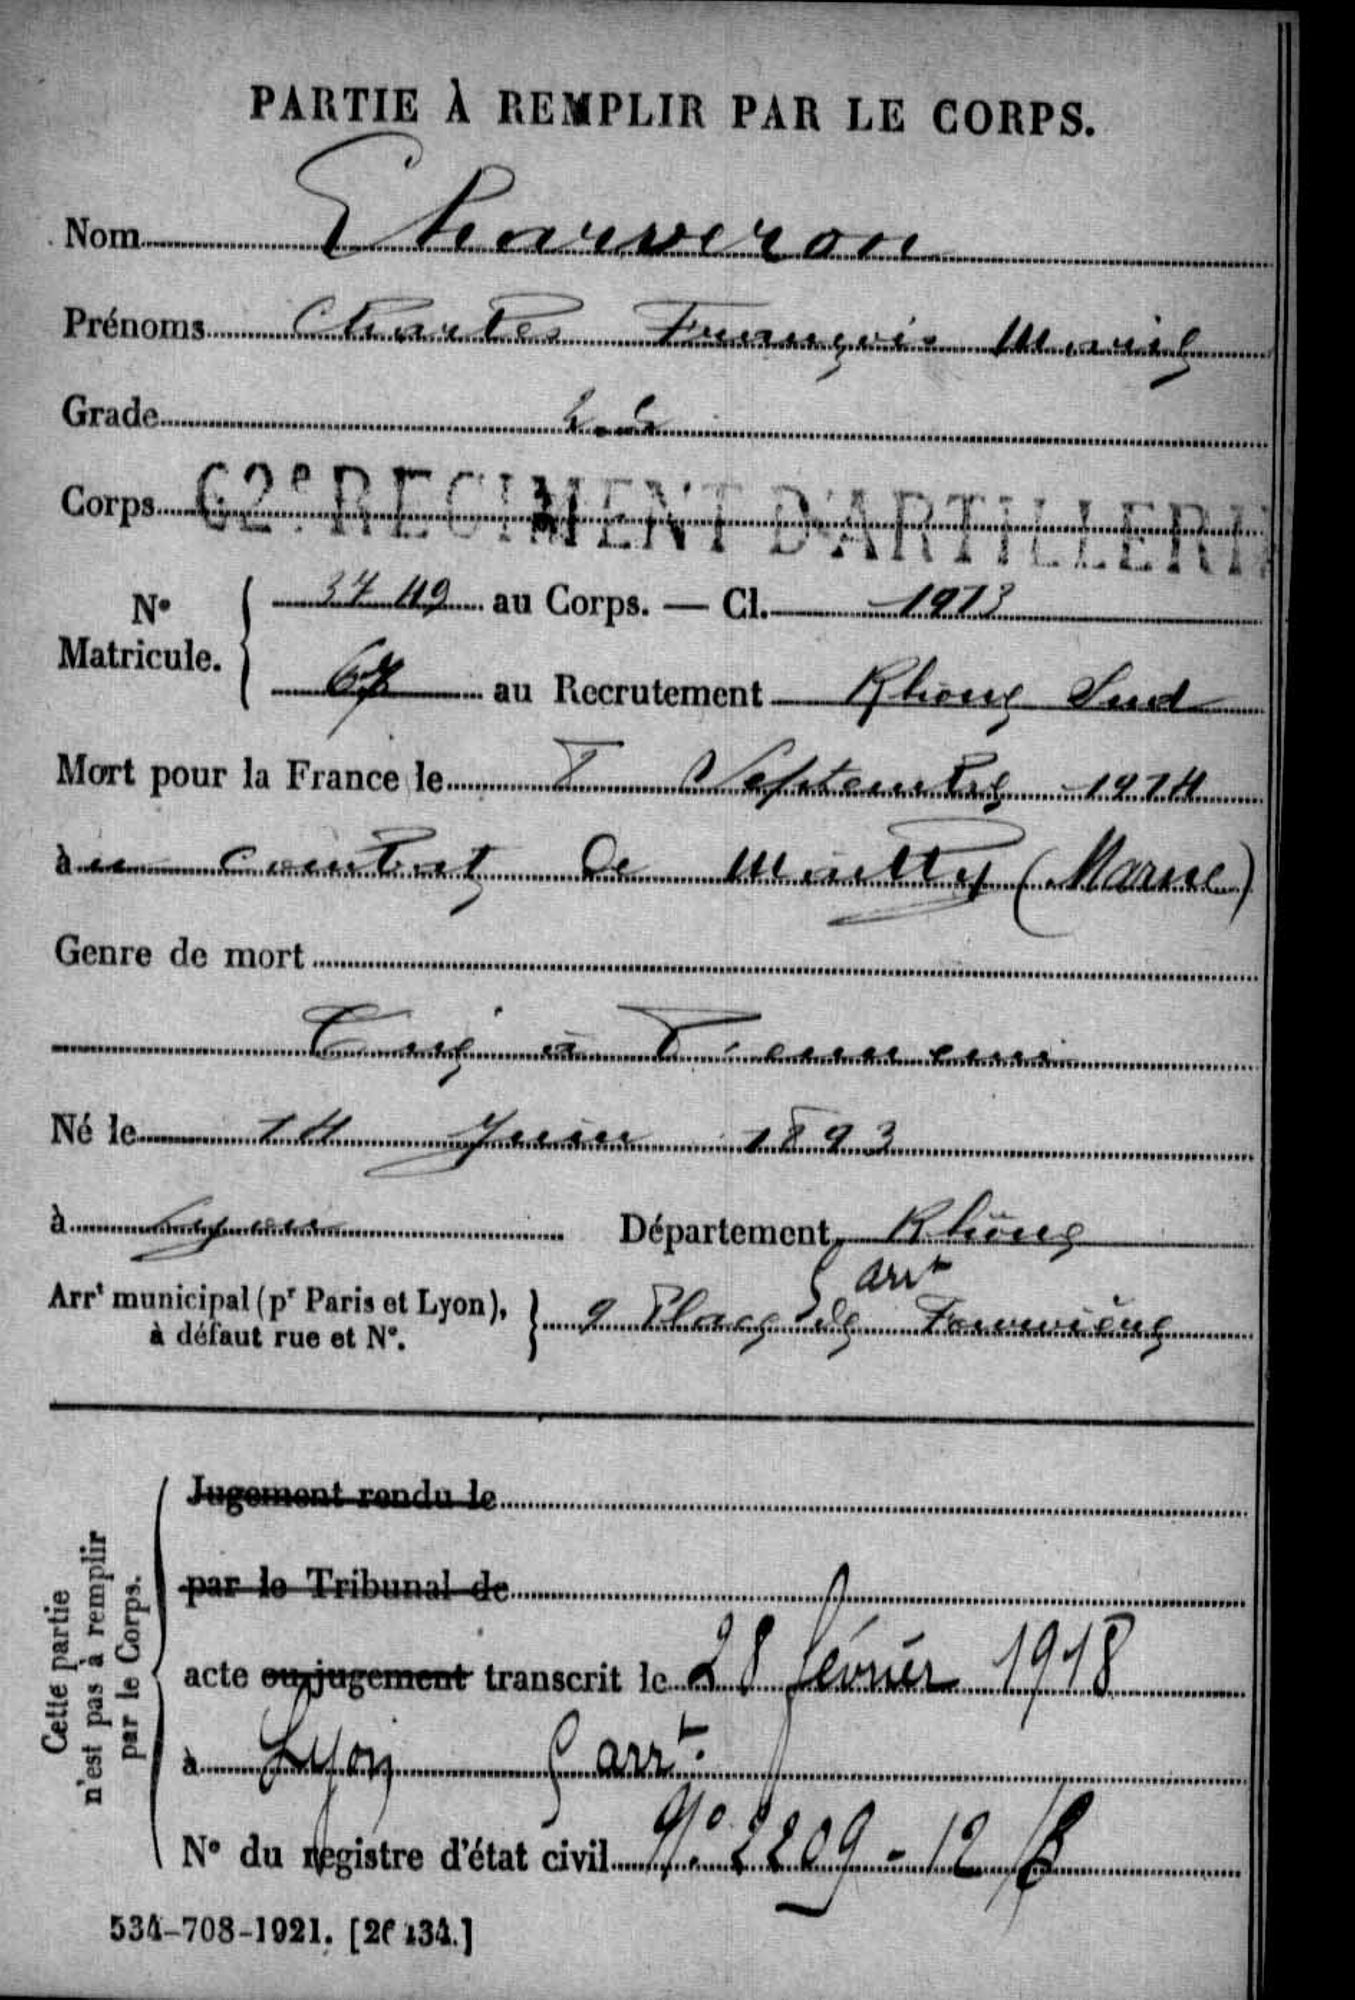 PARTIE À REMPLIR PAR LE CORPS.
Nom Chauveron
Prénoms Charles François Marie
Grade 2. C
Corps 62e REGIMENT D'ARTILLERIE
No Matricule. 3749 au Corps. — Cl. 1913
67 au Recrutement Rhône Sud
Mort pour la France le 8 Septembre 1914
au combat de Mailly (Marne)
Genre de mort
Tué à l'ennemi
Né le 14 Juin 1893
à Lyon Département Rhône
5 arrt
Arrt municipal (pr Paris et Lyon), à défaut rue et No. 9 Place de Fourvière
Cette partie n'est pas à remplir par le Corps.
Jugement rendu le
par le Tribunal de
acte ou jugement transcrit le 28 février 1918
à Lyon 5 arrt.
No du registre d'état civil No 2209 - 12/B
534-708-1921. [26134.]